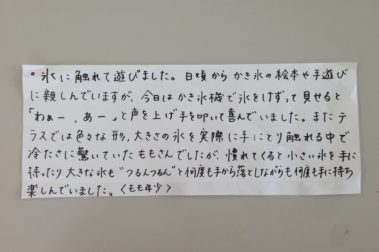 。氷に触れて遊びました。日頃からかき氷の絵本や手遊び
に親しんでいますが、今日はかき氷機で氷をけずって見せると
「わぁー、あー。」と声を上げ手を叩いて喜んでいました。またテ
ラスでは色々な形、大きさの氷を実際に手にとり触れる中で
冷たさに驚いていたももさんでしたが、慣れてくると小さい氷を手に
持ったり大きな氷も"つるんつるん"と何度も手から落としながらも何度も手に持ち
楽しんでいました。(もも年少)